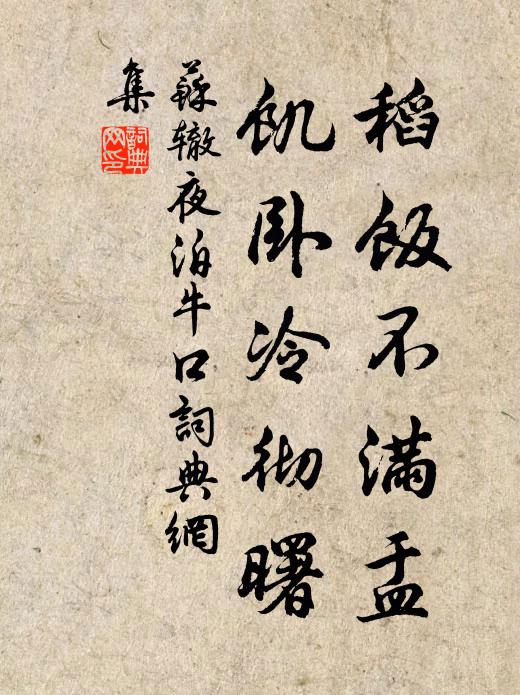 稻飯不滿盂
飢卧冷彻曙
蘇辙夜泊牛口詞典網
集
詞典网印